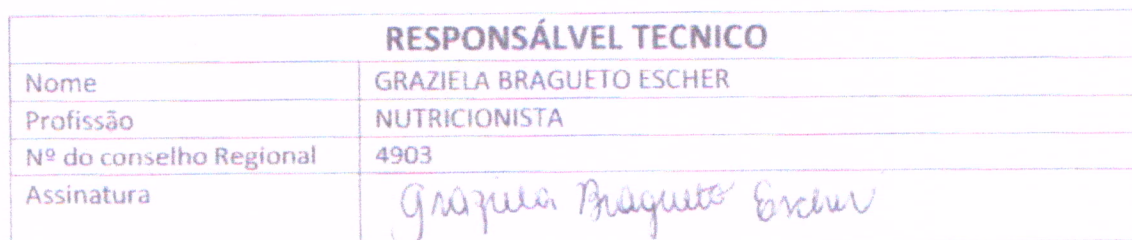 RESPONSÁLVEL TECNICO
Nome GRAZIELA BRAGUETO ESCHER
Profissão NUTRICIONISTA
Nº do conselho Regional 4903
Assinatura Graziela Bragueto Escher